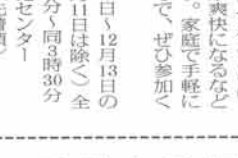 爽快になるなど
。家庭で手軽に
で、ぜひ参加く
日～12月13日の
11日は除く）全
分～同3時30分
センター